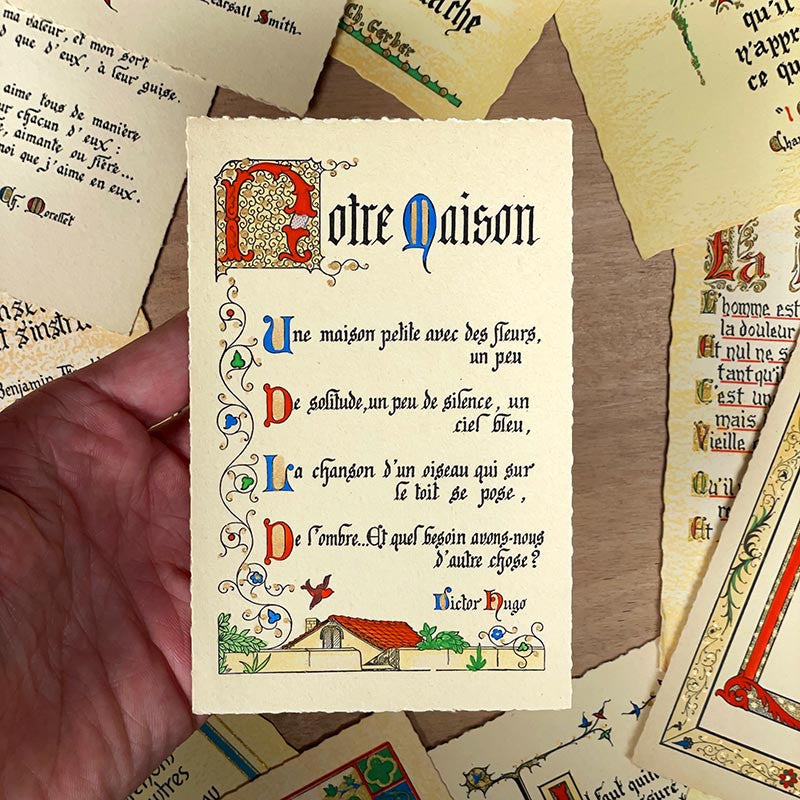 earsall Smith-
ma valeur, et mon sort
que d'eux, à leur guise.
aime tous de manière
ur chacun d'eux :
, aimante ou fière...
moi que j'aime en eux.
Ch. Morellet
Ch. Gerber
qu'il
n'appr
ce qu
Notre Maison
Une maison petite avec des fleurs,
un peu
De solitude, un peu de silence, un
ciel bleu,
La chanson d'un oiseau qui sur
le toit se pose,
De l'ombre...Et quel besoin avons-nous
d'autre chose?
Victor Hugo
Benjamin
La
L'homme est
la douleur
Et nul ne s
tant qu'il
C'est un
mais
Vieille
Qu'il
Et
utres
Faut